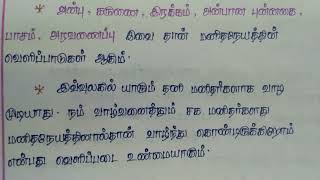 * அன்பு, கருணை, இரக்கம், அன்பான புன்னகை,
பாசம், அரவணைப்பு இவை தான் மனிதநேயத்தின்
வெளிப்பாடுகள் ஆகும்.
* இவ்வுலகில் யாரும் தனி மனிதர்களாக வாழ
முடியாது. நம் வாழ்வனைத்தும் சக மனிதர்களது
மனிதநேயத்தினால்தான் வாழ்ந்து கொண்டிருக்கிறோம்
என்பது வெளிப்படை உண்மையாகும்.